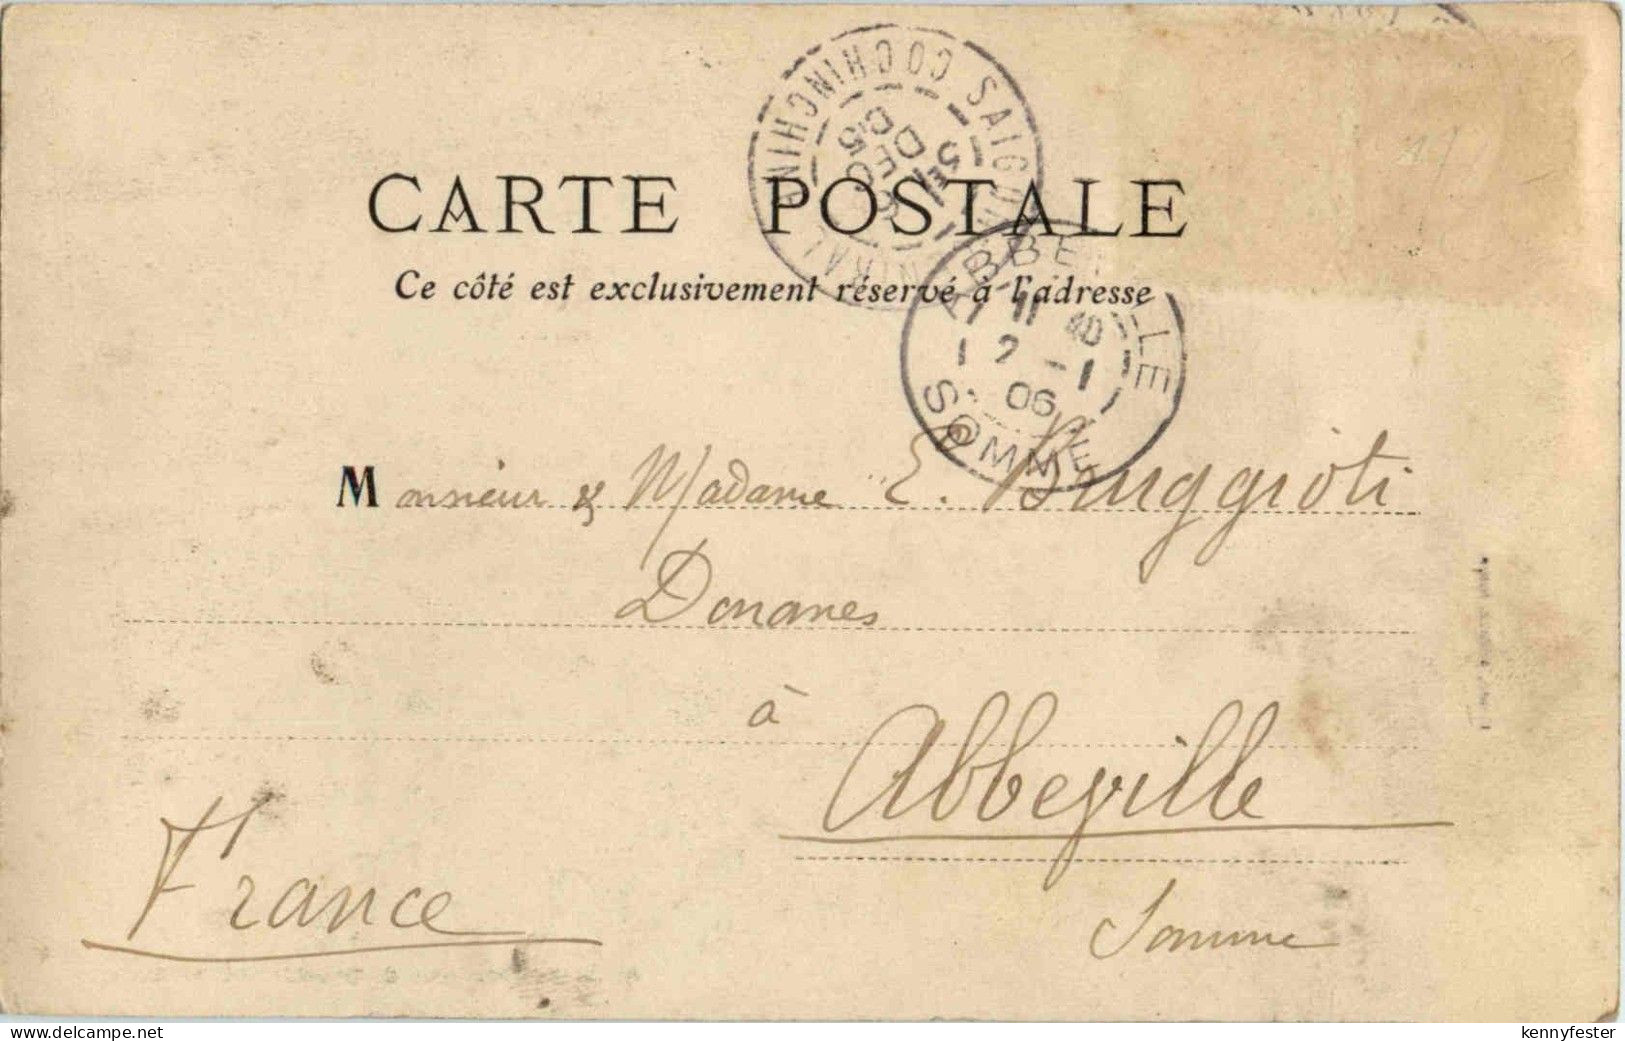 SAIGON CENTRAL COCHINCHINE
5E
DEC
05
CARTE POSTALE
Ce côté est exclusivement réservé à l'adresse
ABBEVILLE
11 40
2 -1
06
SOMME
Monsieur & Madame E. Bruggioti
Douanes
à
Abbeville
France
Somme
www.delcampe.net
kennyfester